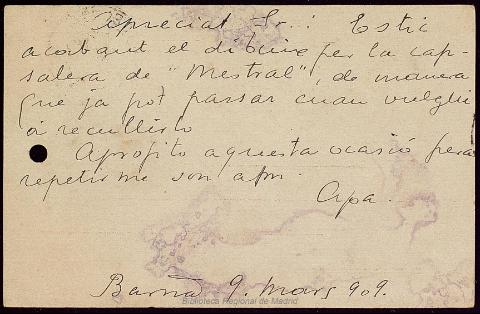 Apreciat Sr.: Estic
acabant el dibuix per la cap-
salera de "Mestral", de manera
que ja pot passar cuan vulgui
á recullirlo
Aprofito aquesta ocasió pera
repetirme son afm.
Apa.
Barna 9. Mars 909.
Biblioteca Regional de Madrid